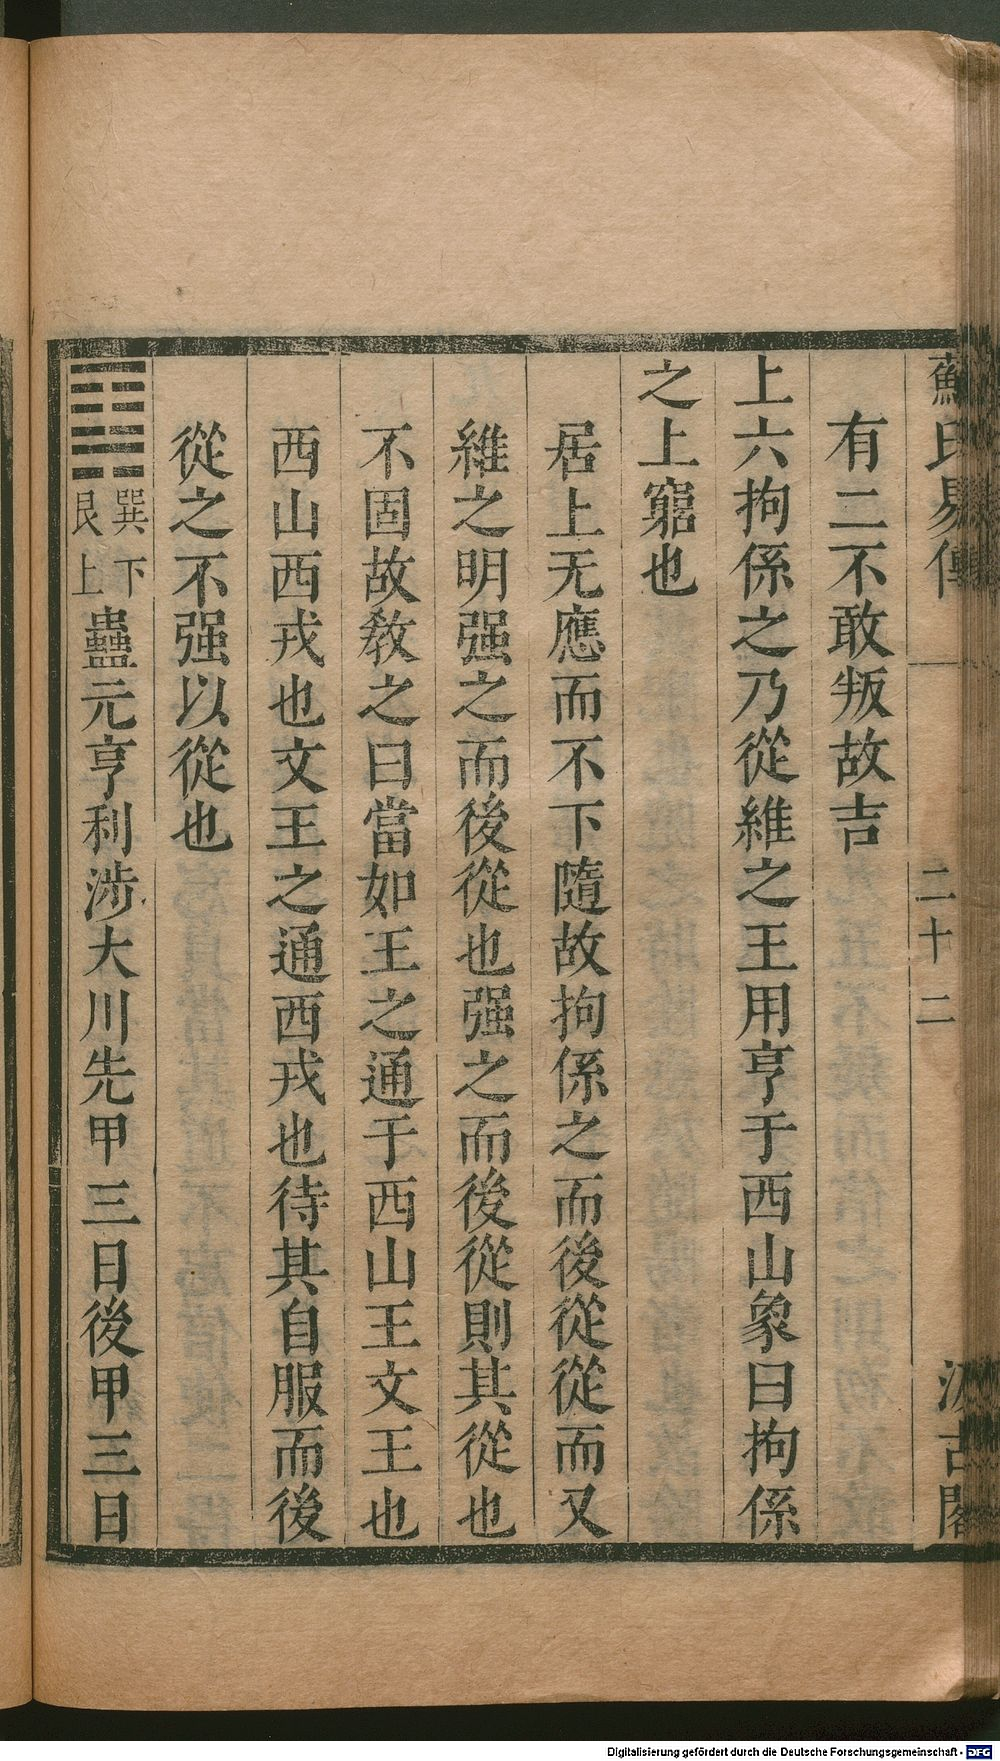 蘇氏易傳 二十二 汲古閣
有二不敢叛故吉
上六拘係之乃從維之王用亨于西山象曰拘係
之上窮也
居上无應而不下隨故拘係之而後從從而又
維之明强之而後從也强之而後從則其從也
不固故教之曰當如王之通于西山王文王也
西山西戎也文王之通西戎也待其自服而後
從之不强以從也
䷑巽下艮上蠱元亨利涉大川先甲三日後甲三日
Digitalisierung gefördert durch die Deutsche Forschungsgemeinschaft - DFG